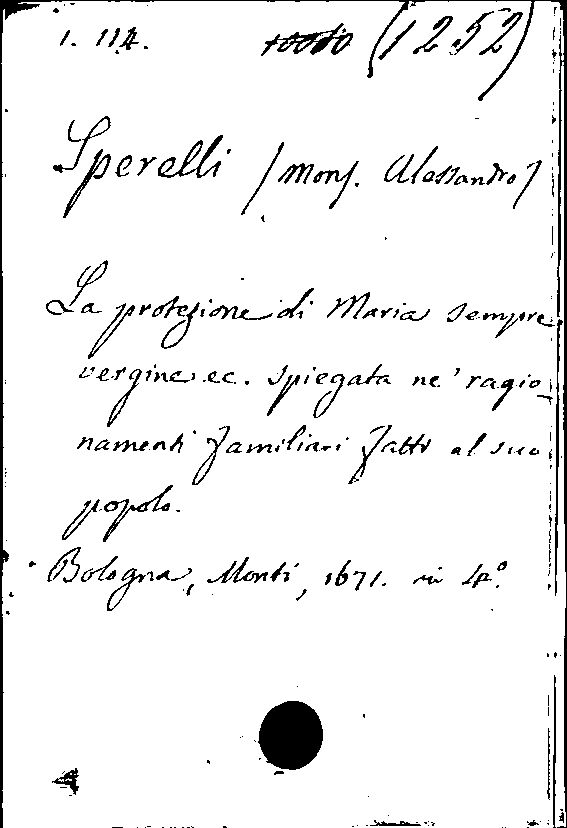 1. 114. (1252)
Sperelli (Mons. Alessandro)
La protezione di Maria sempre
vergine ec. spiegata ne' ragio-
namenti famigliari fatti al suo
popolo.
Bologna, Monti, 1671. in 4°.